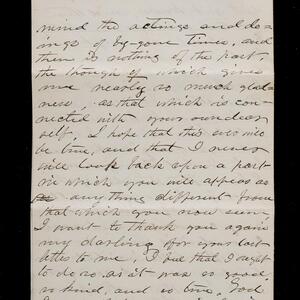 mind the actings and do-
ings of by-gone times, and
there is nothing of the past,
the though of which gives
me nearly so much glad-
ness, as that which is con-
nected with your own dear
self. I hope that this ever will
be true, and that I never
will look back upon a past
in which you will appear as
anything different from
that which you now seem,
I want to thank you again
my darling for your last
letter to me. I feel that I ought
to do so, as it was so good,
so kind, and so true, God